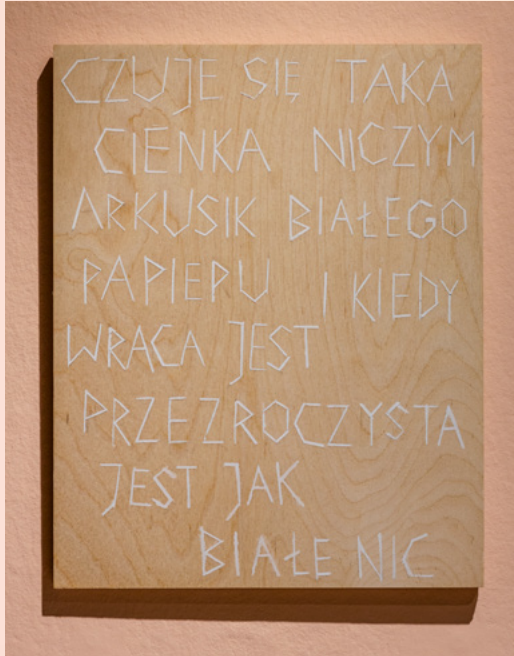 CZUJE SIĘ TAKA
CIENKA NICZYM
ARKUSIK BIAŁEGO
PAPIEPU I KIEDY
WRACA JEST
PRZEZROCZYSTA
JEST JAK
BIAŁE NIC